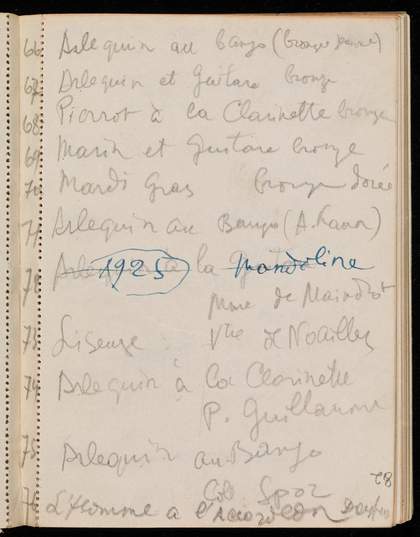 66 Arlequin au banjo (bronze
67 Arlequin et Guitare bronze
68 Pierrot à la Clarinette bronze
69 Marin et Guitare bronze
70 Mardi Gras bronze dorée
71 Arlequin au Banjo (A.
72 1925 à la mandoline
Mme de
73 Liseuse Vte de Noailles
74 Arlequin à la Clarinette
P. Guillaume
75 Arlequin au Banjo
82
Col
76 L'Homme à l'Accordéon